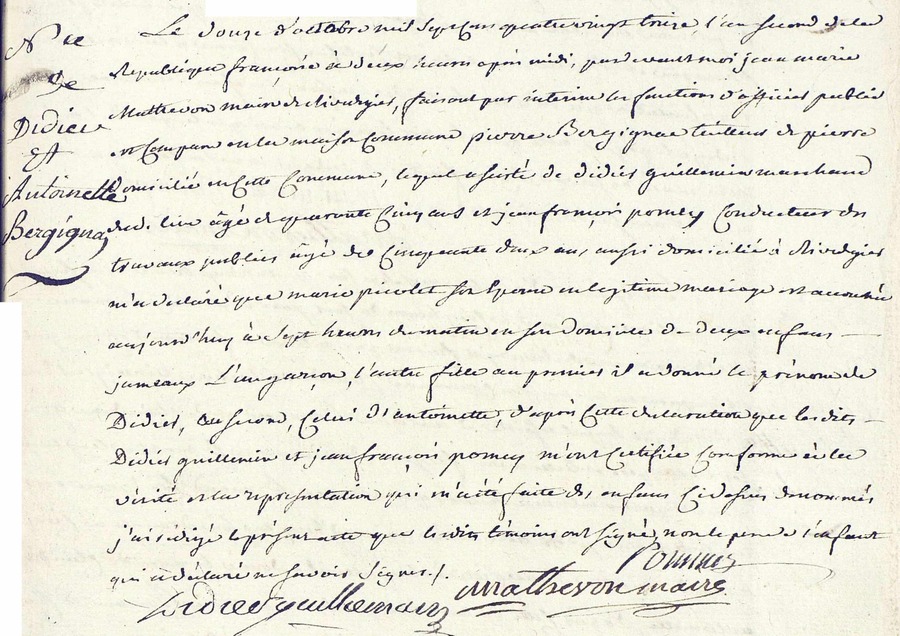 Nce
De
Didier
Et
Antoinette
Bergignac
Le douze d'octobre mil sept cens quatre vingt treize, l'an second de la
Republique françoise à deux heures après midi, pardevant moi jean marie
Mathevon maire de Rivedgiés, faisant par interim les fonctions d'officier publié
est Comparu en la maison Commune pierre Bergignac tailleur de pierre
Domicilié en Cette Commune, lequel assisté de didier guillemin marchand
âgé de quarante Cinq ans et jean françois pomey Conducteur des
travaux publics âgé de Cinquante deux ans, aussi domicilié à Rivedgiés
m'a declaré que marie picolet son Epouse en légitime mariage est accouchée
aujourd'huy à Sept heures du matin en son domicile de deux enfans —
jumeaux L'un garçon, l'autre fille au premier il a donné le prénom de
Didier, au second, Celui d'antoinette, d'après Cette declaration que les dits —
Didier guillemin et jean françois pomey m'ont Certifiée Conforme à la
vérité et la representation qui m'a été faite des enfans Cidessus denommés
j'ai rédigé le présent acte que les dits témoins ont signé, non le pere de l'enfant
qui a déclaré ne savoir signer ./.
Pommey
didier guillemain mathevon maire